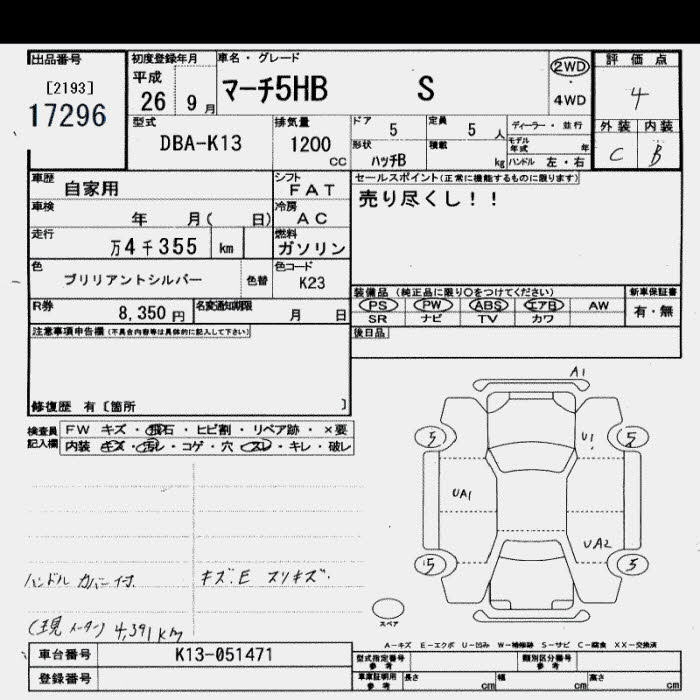 出品番号
[2193]
17296
初度登録年月
平成
26 9月
車名・グレード
マーチ5HB S
2WD
・
4WD
評価点
4
外装 内装
C B
型式
DBA-K13
排気量
1200
CC
ドア
5
定員
5 人
形状
ハッチB
積載
kg
ディーラー・並行
モデル年式 年
ハンドル 左・右
車歴
自家用
シフト
FAT
車検
年 月( 日)
冷房
AC
走行
万4千355 km
燃料
ガソリン
色
ブリリアントシルバー
色替
色コード
K23
R券
8,350 円
名変通知期限
月 日
セールスポイント(正常に機能するものに限ります)
売り尽くし!!
装備品 (純正品に限り○をつけてください)
新車保証書
PS PW ABS エアB AW
有・無
SR ナビ TV カワ
後日品
注意事項申告欄(不具合内容等は具体的に記入して下さい)
修復歴 有〔箇所 〕
検査員
記入欄
FW キズ・飛石・ヒビ割・リペア跡・×要
内装 キズ・汚レ・コゲ・穴・スレ・キレ・破レ
A1
5 U1 5
UA1
UA2
5 5
スペア
ハンドルカバー付
キズ.E スリキズ.
(現メーター) 4,391km
A−キズ E−エクボ U−凹み W−補修跡 S−サビ C−腐食 XX−交換済
車台番号
K13-051471
登録番号
型式指定番号
参考
類別区分番号
参考
車庫証明用
参考
長さ cm
幅 cm
高さ cm